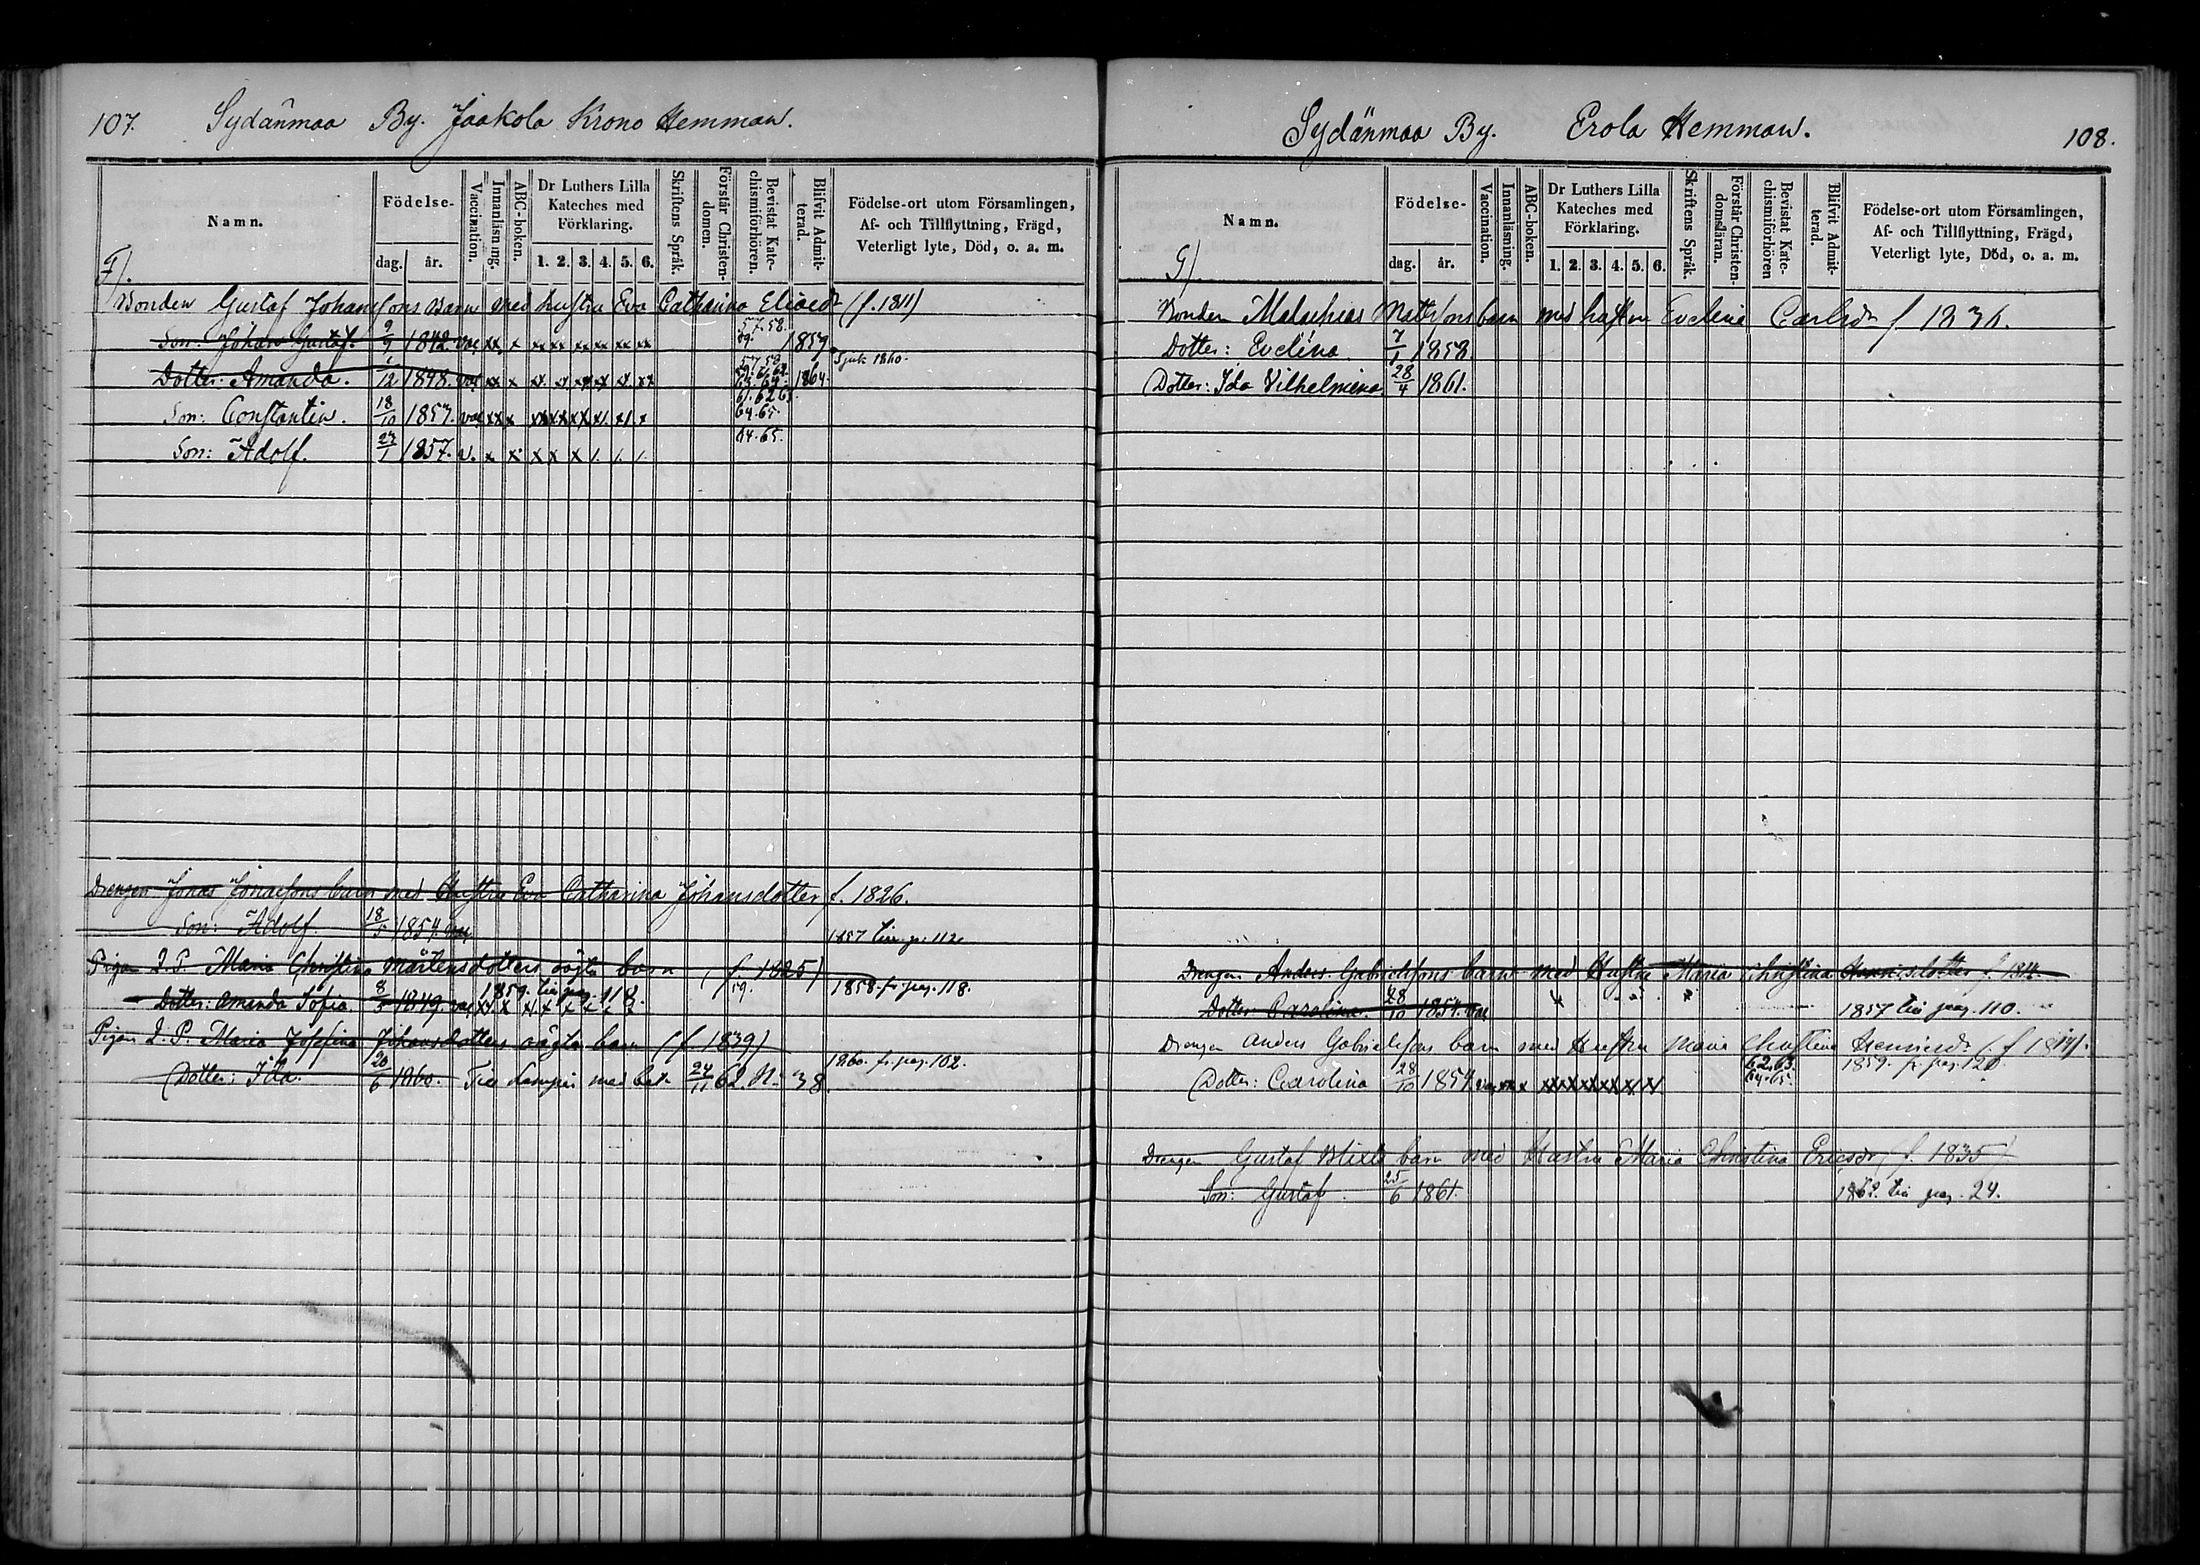 107. Sydänmaa By. Jaakola Krono Hemman.
Namn.
Födelse-
dag. år.
Vaccination.
Innanläsning.
ABC-boken.
Dr Luthers Lilla Kateches med Förklaring.
1. 2. 3. 4. 5. 6.
Skriftens Språk.
Förstår Christen-domen.
Bevistat Kate-chismiförhören.
Blifvit Admit-terad.
Födelse-ort utom Församlingen,
Af- och Tillflyttning, Frägd,
Veterligt lyte, Död, o. a. m.
F).
Bonden Gustaf Johanssons Barn med hustru Eva Catharina Eliaedr (f. 1811)
Son: Johan Gustaf. 9/9 1842. vac xx x xx xx xx xx xx xx 57.58. 59. 1859
Dotter: Amanda. 1/12 1848. vac xx x 1864. Sjuk 1860.
Son: Constantin. 18/10 1853. vac xx x 61. 62 63. 64. 65.
Son: Adolf. 27/1 1857. v. x. x. x x x /. /. /. 64. 65.
Drengen Jonas Jonassons barn med Hustru Eva Catharina Johansdotter f. 1826.
Son: Adolf. 18/5 1854. vac 1857 till p: 112
Pigan I. P. Maria Christina Mårtensdotters oägta barn (f. 1825)
Dotter: Amanda Sofia. 8/3 1849. vac 1859. till pag. 118. 59. 1858. fr. pag. 118.
Pigan I. P. Maria Josefina Johansdotters oägta barn (f 1839)
Dotter: Ida. 20/6 1860. Till Lampis med bet. 24/11 62 N. 38. 1860. fr. pag. 102.
Sydänmaa By. Erola Hemman. 108.
Namn.
Födelse-
dag. år.
Vaccination.
Innanläsning.
ABC-boken.
Dr Luthers Lilla Kateches med Förklaring.
1. 2. 3. 4. 5. 6.
Skriftens Språk.
Förstår Christen-domsläran.
Bevistat Kate-chismiförhören
Blifvit Admit-terad.
Födelse-ort utom Församlingen,
Af- och Tillflyttning, Frägd,
Veterligt lyte, Död, o. a. m.
G)
Bonden Malachias Mattssons barn med hustru Evelina Carlsdr f 1836.
Dotter: Evelina. 7/1 1858.
Dotter: Ida Vilhelmina. 28/4 1861.
Drengen Anders Gabrielssons barn med Hustru Maria Christina f 1814.
Dotter Carolina. 28/10 1854. vac 1857 till pag. 110.
Drengen Anders Gabrielssons barn med Hustru Maria Christina f 1814).
Dotter: Carolina 28/10 1854. vac xx x 62.63. 64.65. 1859. fr. pag. 120.
Drengen Gustaf Blixts barn med Hustru Maria Christina Ericsdr (f. 1835)
Son: Gustaf. 25/6 1861. 1862. till pag. 24.